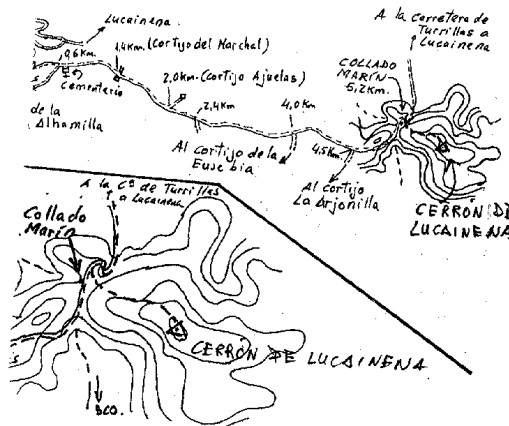 Lucainena
0,6 Km.
1,4 Km. (Cortijo del Marchal)
Cementerio
de la
Alhamilla
2,0 Km. (Cortijo Ajuelas)
2,4 Km
Al Cortijo de la
Eusebia
4,0 Km
4,5 Km
Al Cortijo
La Arjonilla
A la Carretera de
Turrillas a
Lucainena
COLLADO
MARÍN
5,2 Km.
CERRÓN DE
LUCAINENA
A la Cª de Turrillas
a Lucainena
Collado
Marín
CERRÓN DE LUCAINENA
BCO.